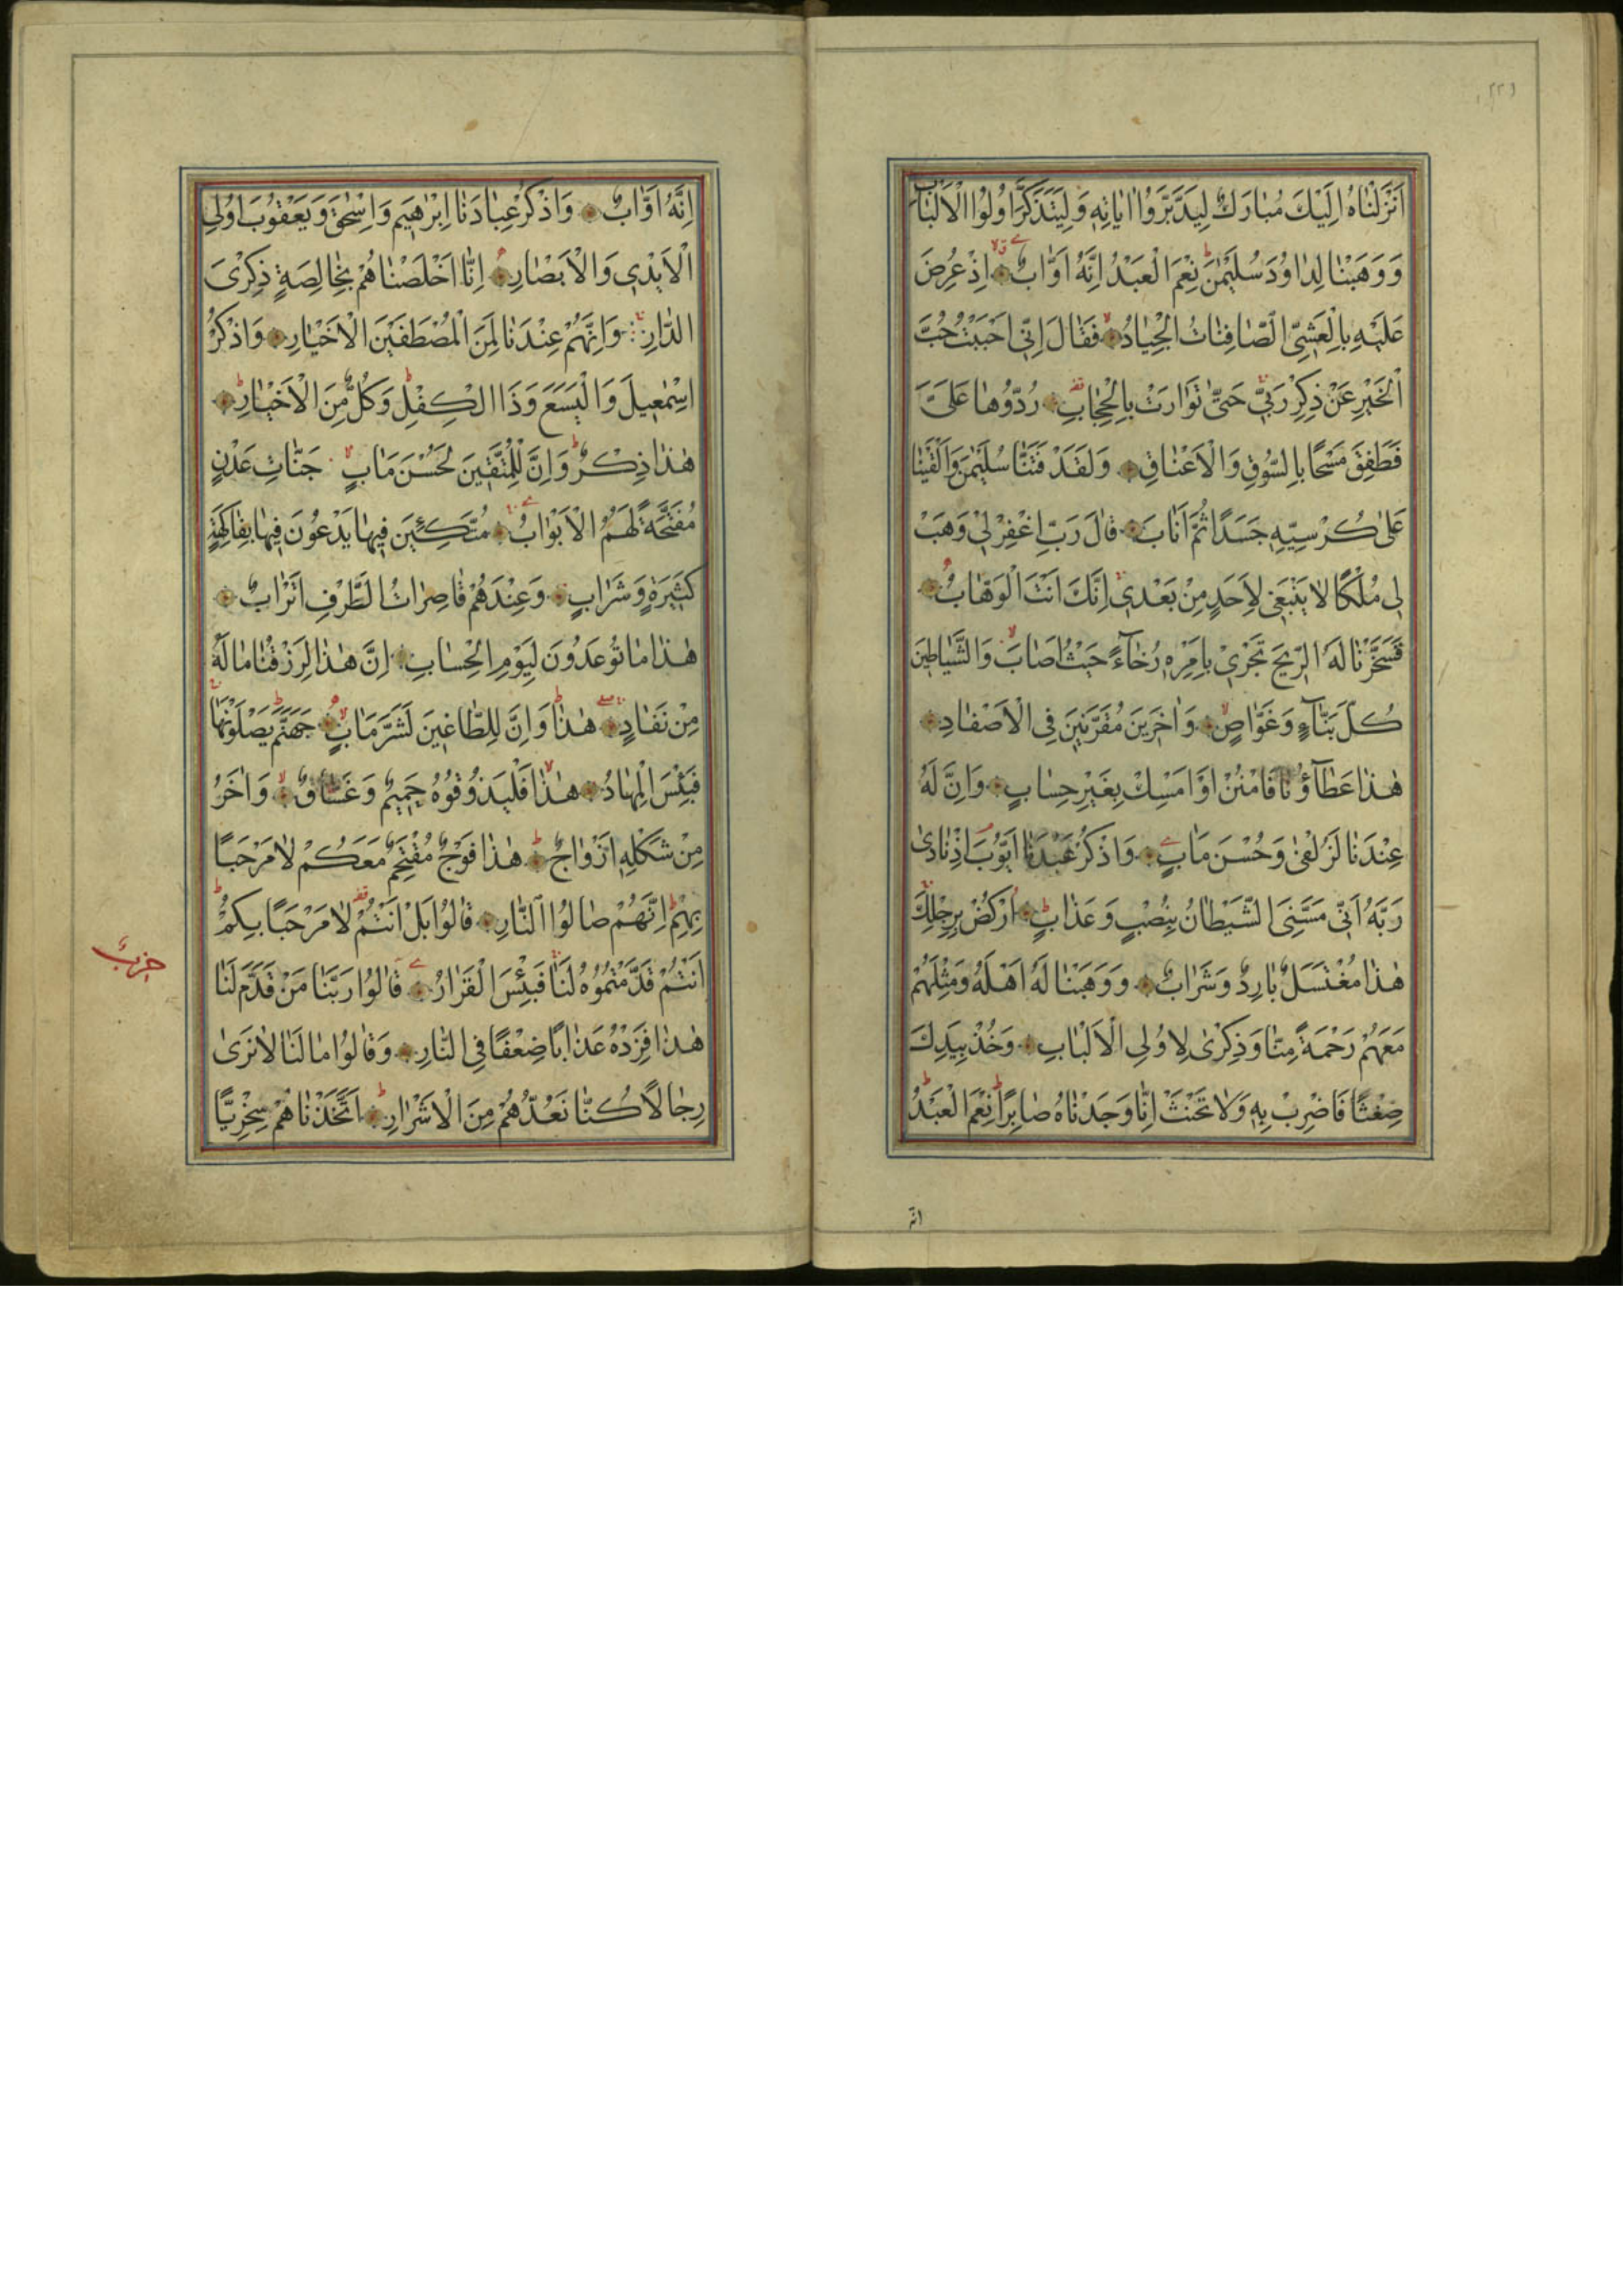 ٢٢٦
اَنْزَلْنَاهُ اِلَيْكَ مُبَارَكٌ لِيَدَّبَّرُوا اٰيَاتِهِ وَلِيَتَذَكَّرَ اُولُوا الْاَلْبَابِ
وَوَهَبْنَا لِدَاوُدَ سُلَيْمٰنَ نِعْمَ الْعَبْدُ اِنَّهُ اَوَّابٌ اِذْ عُرِضَ
عَلَيْهِ بِالْعَشِيِّ الصَّافِنَاتُ الْجِيَادُ فَقَالَ اِنِّي اَحْبَبْتُ حُبَّ
الْخَيْرِ عَنْ ذِكْرِ رَبِّي حَتّٰى تَوَارَتْ بِالْحِجَابِ رُدُّوهَا عَلَيَّ
فَطَفِقَ مَسْحًا بِالسُّوقِ وَالْاَعْنَاقِ وَلَقَدْ فَتَنَّا سُلَيْمٰنَ وَاَلْقَيْنَا
عَلٰى كُرْسِيِّهِ جَسَدًا ثُمَّ اَنَابَ قَالَ رَبِّ اغْفِرْ لِي وَهَبْ
لِي مُلْكًا لَا يَنْبَغِي لِاَحَدٍ مِنْ بَعْدِي اِنَّكَ اَنْتَ الْوَهَّابُ
فَسَخَّرْنَا لَهُ الرِّيحَ تَجْرِي بِاَمْرِهِ رُخَاءً حَيْثُ اَصَابَ وَالشَّيَاطِينَ
كُلَّ بَنَّاءٍ وَغَوَّاصٍ وَاٰخَرِينَ مُقَرَّنِينَ فِي الْاَصْفَادِ
هٰذَا عَطَاؤُنَا فَامْنُنْ اَوْ اَمْسِكْ بِغَيْرِ حِسَابٍ وَاِنَّ لَهُ
عِنْدَنَا لَزُلْفٰى وَحُسْنَ مَاٰبٍ وَاذْكُرْ عَبْدَنَا اَيُّوبَ اِذْ نَادٰى
رَبَّهُ اَنِّي مَسَّنِيَ الشَّيْطَانُ بِنُصْبٍ وَعَذَابٍ اُرْكُضْ بِرِجْلِكَ
هٰذَا مُغْتَسَلٌ بَارِدٌ وَشَرَابٌ وَوَهَبْنَا لَهُ اَهْلَهُ وَمِثْلَهُمْ
مَعَهُمْ رَحْمَةً مِنَّا وَذِكْرٰى لِاُولِي الْاَلْبَابِ وَخُذْ بِيَدِكَ
ضِغْثًا فَاضْرِبْ بِهِ وَلَا تَحْنَثْ اِنَّا وَجَدْنَاهُ صَابِرًا نِعْمَ الْعَبْدُ
انه
اِنَّهُ اَوَّابٌ وَاذْكُرْ عِبَادَنَا اِبْرٰهِيمَ وَاِسْحٰقَ وَيَعْقُوبَ اُولِي
الْاَيْدِي وَالْاَبْصَارِ اِنَّا اَخْلَصْنَاهُمْ بِخَالِصَةٍ ذِكْرَى
الدَّارِ وَاِنَّهُمْ عِنْدَنَا لَمِنَ الْمُصْطَفَيْنَ الْاَخْيَارِ وَاذْكُرْ
اِسْمٰعِيلَ وَالْيَسَعَ وَذَا الْكِفْلِ وَكُلٌّ مِنَ الْاَخْيَارِ
هٰذَا ذِكْرٌ وَاِنَّ لِلْمُتَّقِينَ لَحُسْنَ مَاٰبٍ جَنَّاتِ عَدْنٍ
مُفَتَّحَةً لَهُمُ الْاَبْوَابُ مُتَّكِئِينَ فِيهَا يَدْعُونَ فِيهَا بِفَاكِهَةٍ
كَثِيرَةٍ وَشَرَابٍ وَعِنْدَهُمْ قَاصِرَاتُ الطَّرْفِ اَتْرَابٌ
هٰذَا مَا تُوعَدُونَ لِيَوْمِ الْحِسَابِ اِنَّ هٰذَا لَرِزْقُنَا مَا لَهُ
مِنْ نَفَادٍ هٰذَا وَاِنَّ لِلطَّاغِينَ لَشَرَّ مَاٰبٍ جَهَنَّمَ يَصْلَوْنَهَا
فَبِئْسَ الْمِهَادُ هٰذَا فَلْيَذُوقُوهُ حَمِيمٌ وَغَسَّاقٌ وَاٰخَرُ
مِنْ شَكْلِهِ اَزْوَاجٌ هٰذَا فَوْجٌ مُقْتَحِمٌ مَعَكُمْ لَا مَرْحَبًا
بِهِمْ اِنَّهُمْ صَالُوا النَّارِ قَالُوا بَلْ اَنْتُمْ لَا مَرْحَبًا بِكُمْ
اَنْتُمْ قَدَّمْتُمُوهُ لَنَا فَبِئْسَ الْقَرَارُ قَالُوا رَبَّنَا مَنْ قَدَّمَ لَنَا
حزب
هٰذَا فَزِدْهُ عَذَابًا ضِعْفًا فِي النَّارِ وَقَالُوا مَا لَنَا لَا نَرٰى
رِجَالًا كُنَّا نَعُدُّهُمْ مِنَ الْاَشْرَارِ اَتَّخَذْنَاهُمْ سِخْرِيًّا